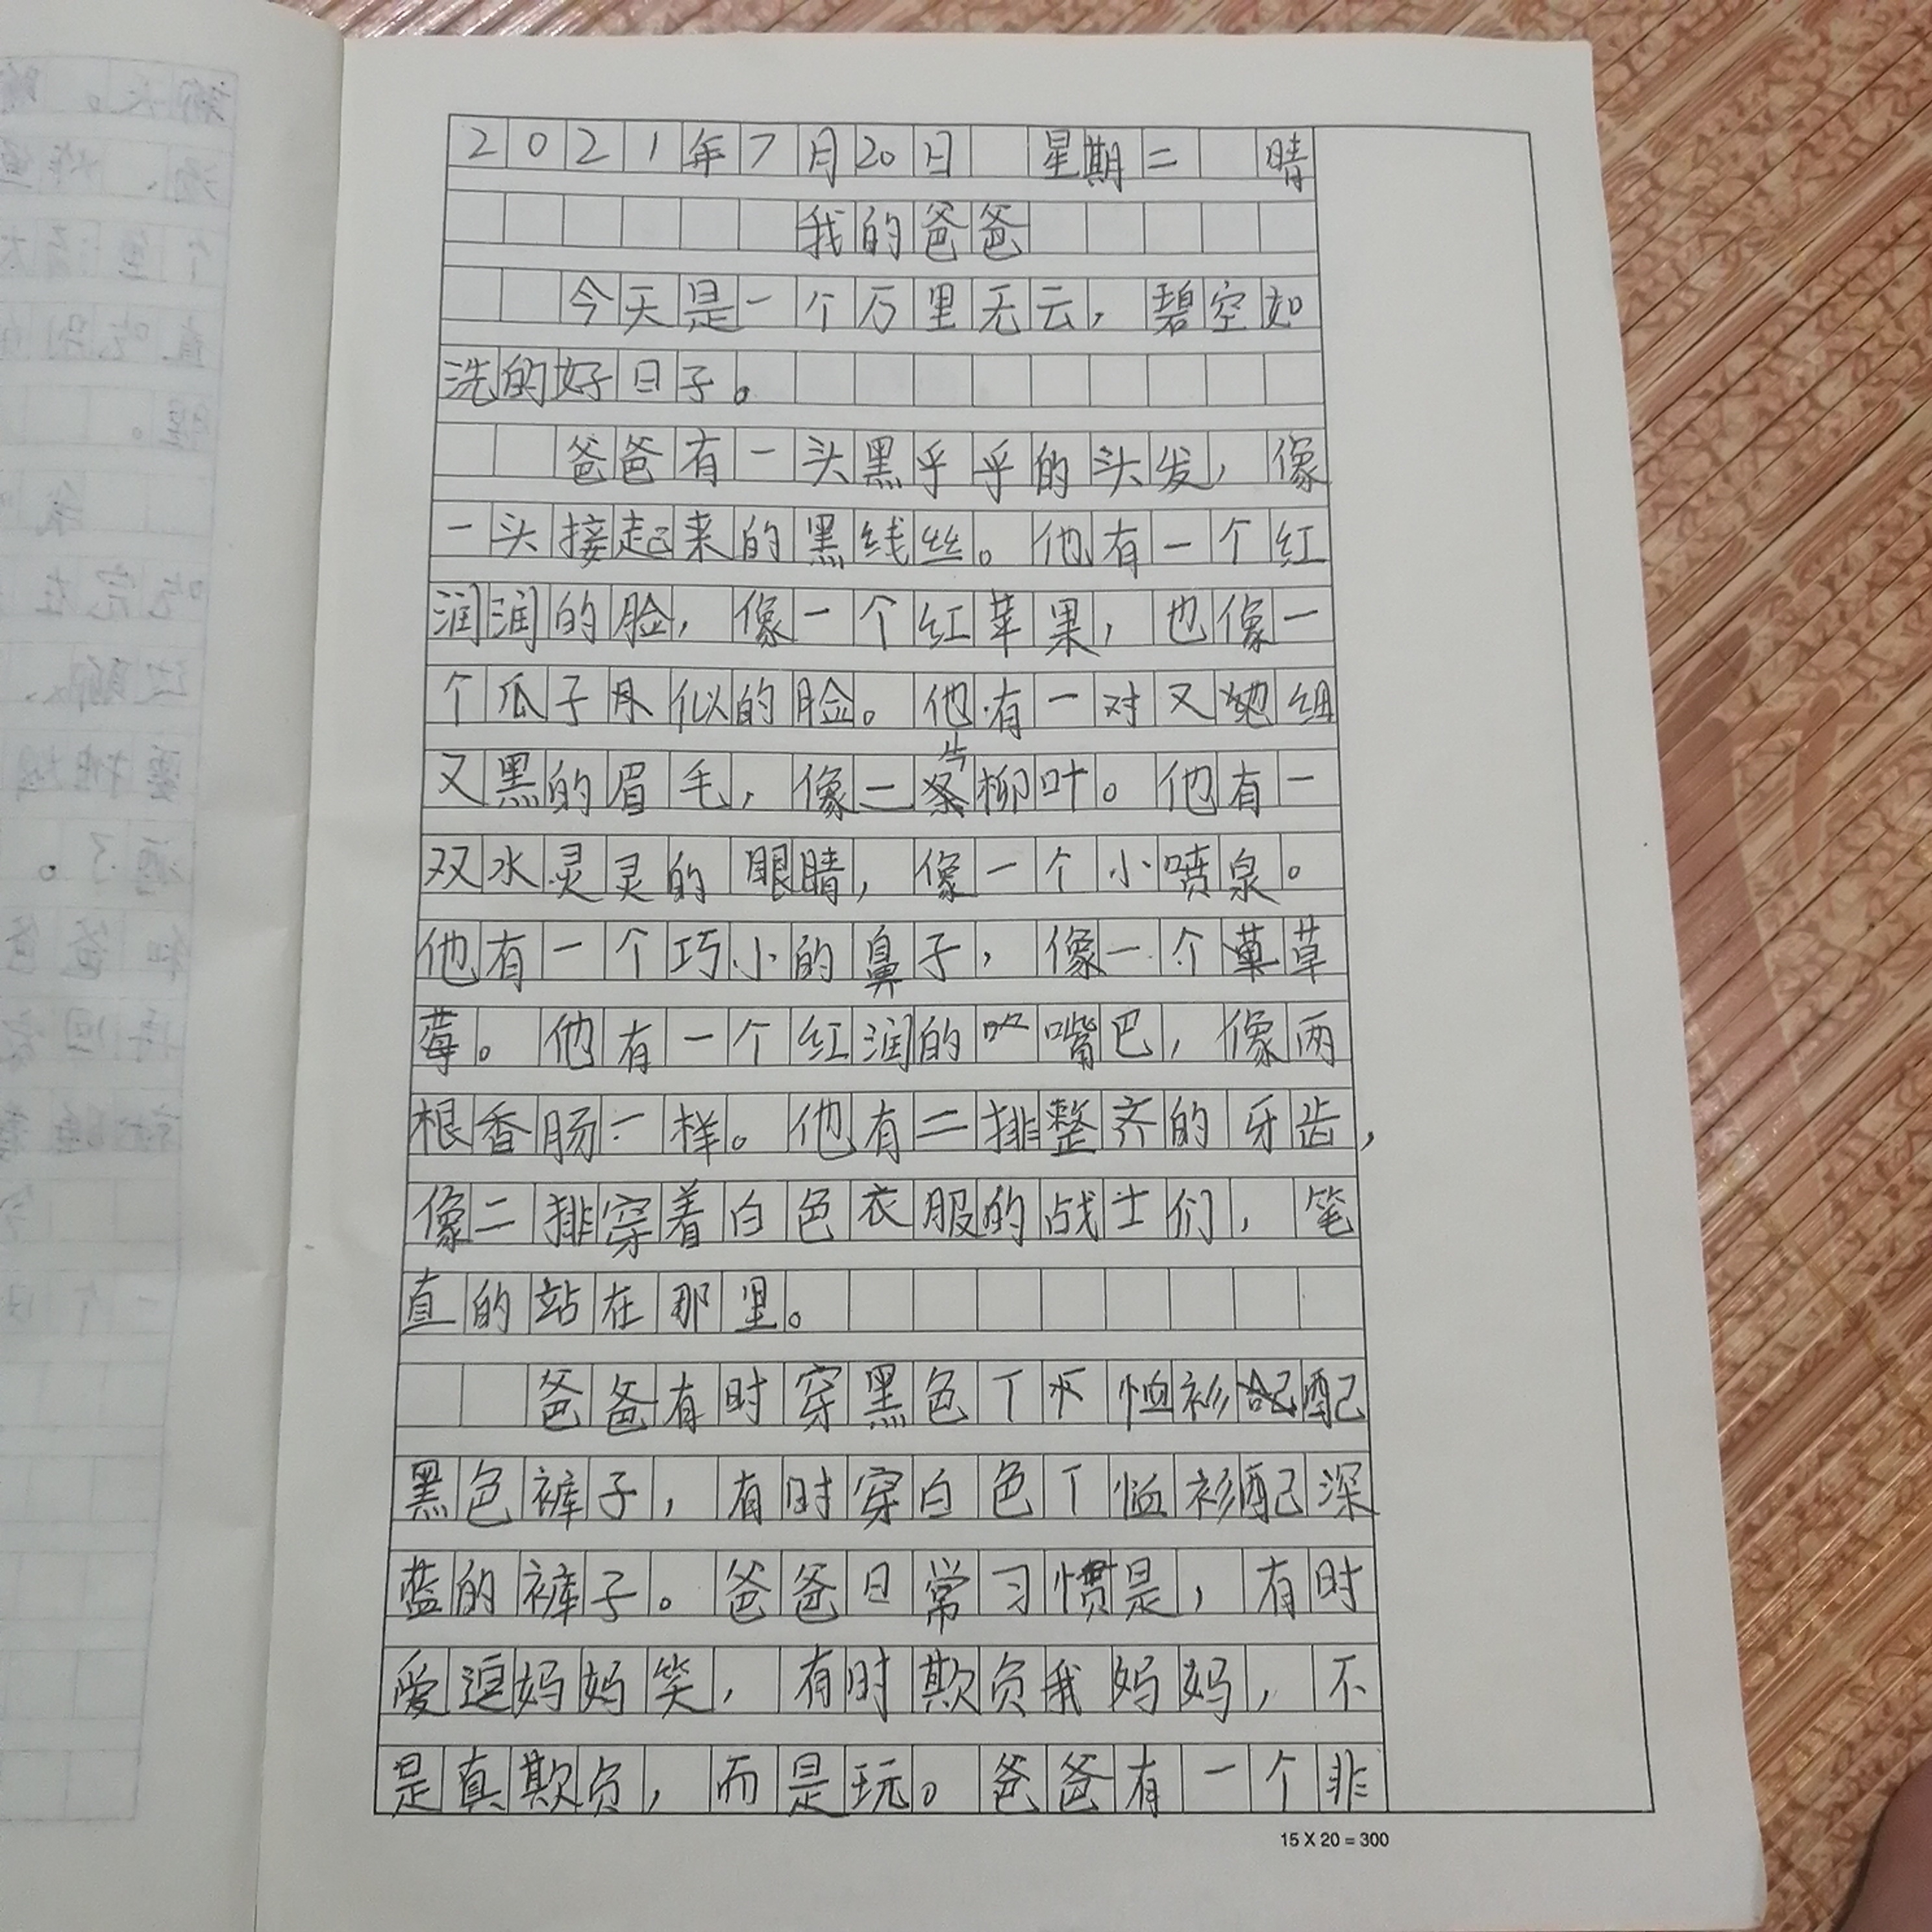 2021年7月20日 星期二 晴
我的爸爸
今天是一个万里无云，碧空如
洗的好日子。
爸爸有一头黑乎乎的头发，像
一头接起来的黑线丝。他有一个红
润润的脸，像一个红苹果，也像一
个瓜子似的脸。他有一对又细
又黑的眉毛，像二片柳叶。他有一
双水灵灵的眼睛，像一个小喷泉。
他有一个巧小的鼻子，像一个草
莓。他有一个红润的嘴巴，像两
根香肠一样。他有二排整齐的牙齿，
像二排穿着白色衣服的战士们，笔
直的站在那里。
爸爸有时穿黑色丅恤衫配
黑色裤子，有时穿白色丅恤衫配深
蓝的裤子。爸爸日常习惯是，有时
爱逗妈妈笑，有时欺负我妈妈，不
是真欺负，而是玩。爸爸有一个非
15 X 20 = 300